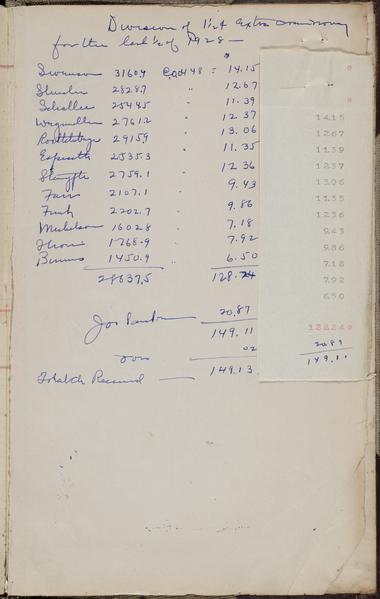 Division of 1½¢ extra
for the last ½ of 1928 —
Swenson 3160.9 @.00448 = $14.15
2828.7 " 12.67
Schaller 2544.5 11.39
2761.2 " 12.37
2915.9 " 13.06
2535.3 " 11.35
2759.1 " 12.36
Fair 2107.1 " 9.43
Funk 2202.7 " 9.86
1602.8 " 7.18
1768.9 " 7.92
1450.9 " 6.50
28637.5 128.24
20.87
149.11
.02
Total Received — 149.13
14.15
12.67
11.39
12.37
13.06
11.35
12.36
9.43
9.86
7.18
7.92
6.50
128.24
20.87
149.11